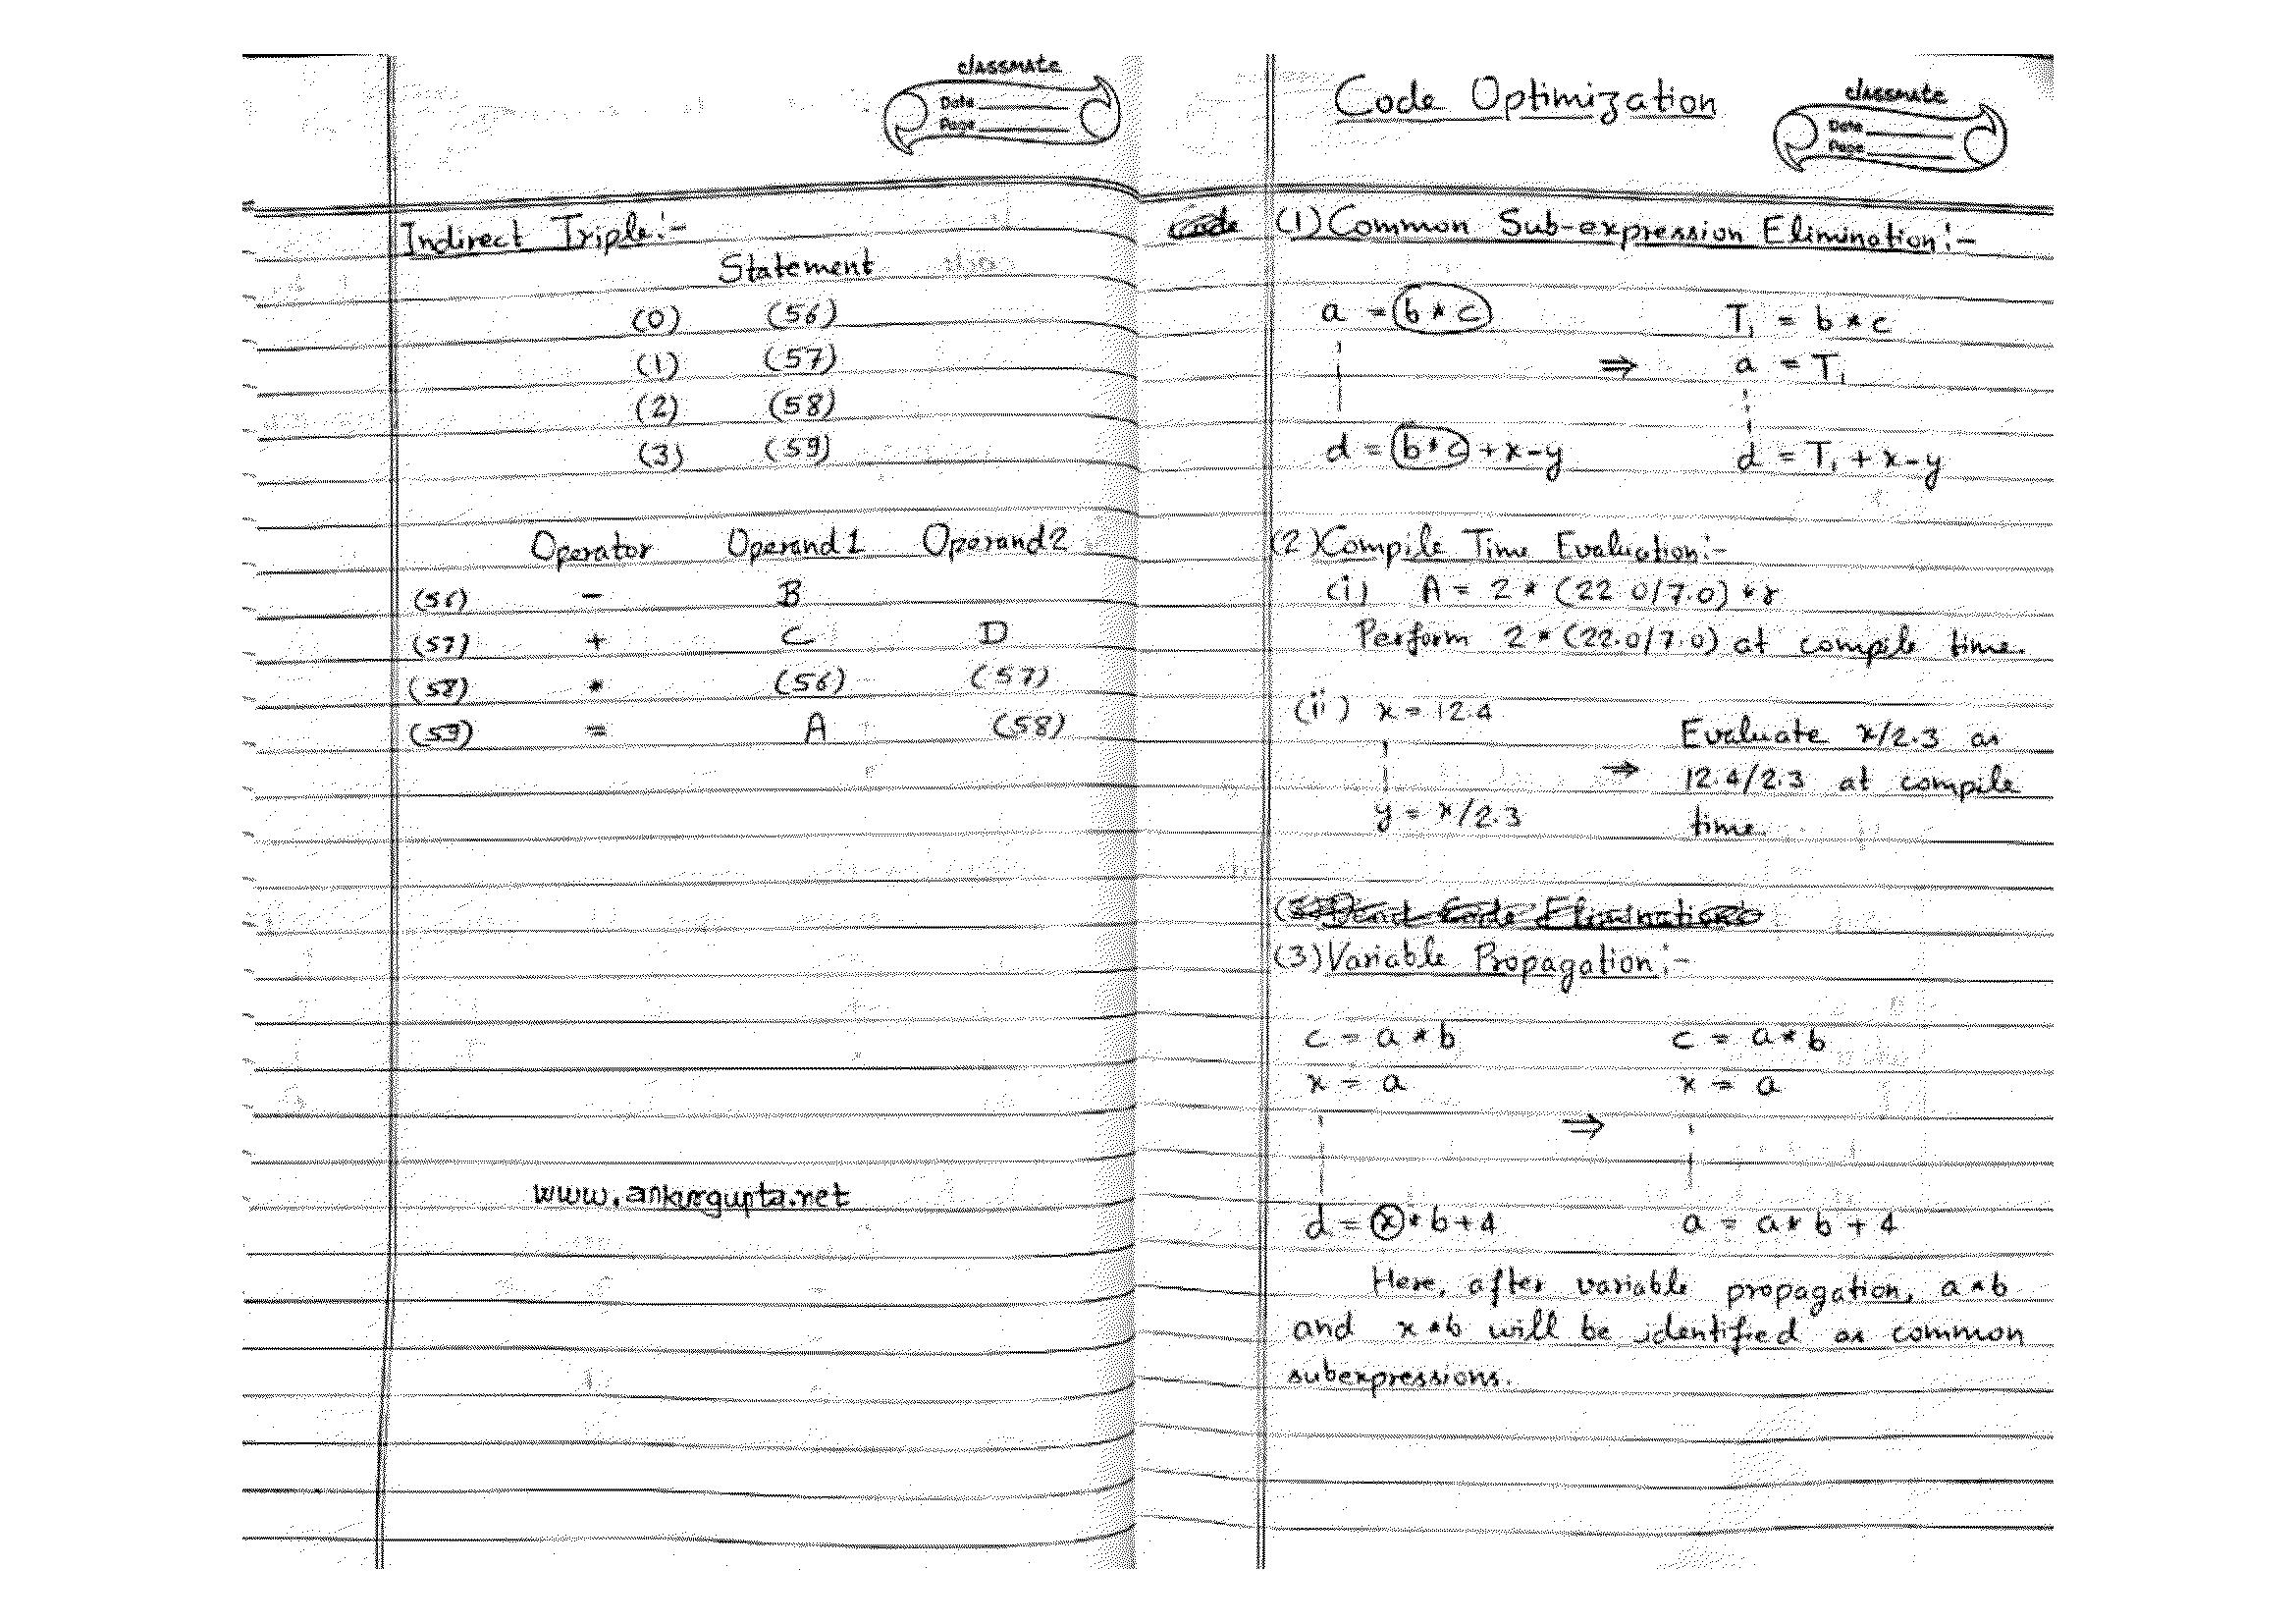 classmate
Date
Page
Indirect Triple:-
Statement
(0) (56)
(1) (57)
(2) (58)
(3) (59)
Operator Operand1 Operand2
(56) - B
(57) + C D
(58) * (56) (57)
(59) = A (58)
www.ankurgupta.net
Code Optimization
classmate
Date
Page
Code (1) Common Sub-expression Elimination:-
a = b * c T₁ = b * c
⇒ a = T₁
d = b * c + x - y d = T₁ + x - y
(2) Compile Time Evaluation:-
(i) A = 2 * (22.0/7.0) * r
Perform 2 * (22.0/7.0) at compile time.
(ii) x = 12.4
Evaluate x/2.3 as
→ 12.4/2.3 at compile
y = x/2.3 time.
(3) Dead Code Elimination
(3) Variable Propagation:-
c = a * b c = a * b
x = a x = a
⇒
d = x * b + 4 a = a * b + 4
Here, after variable propagation, a * b
and x * b will be identified as common
subexpressions.